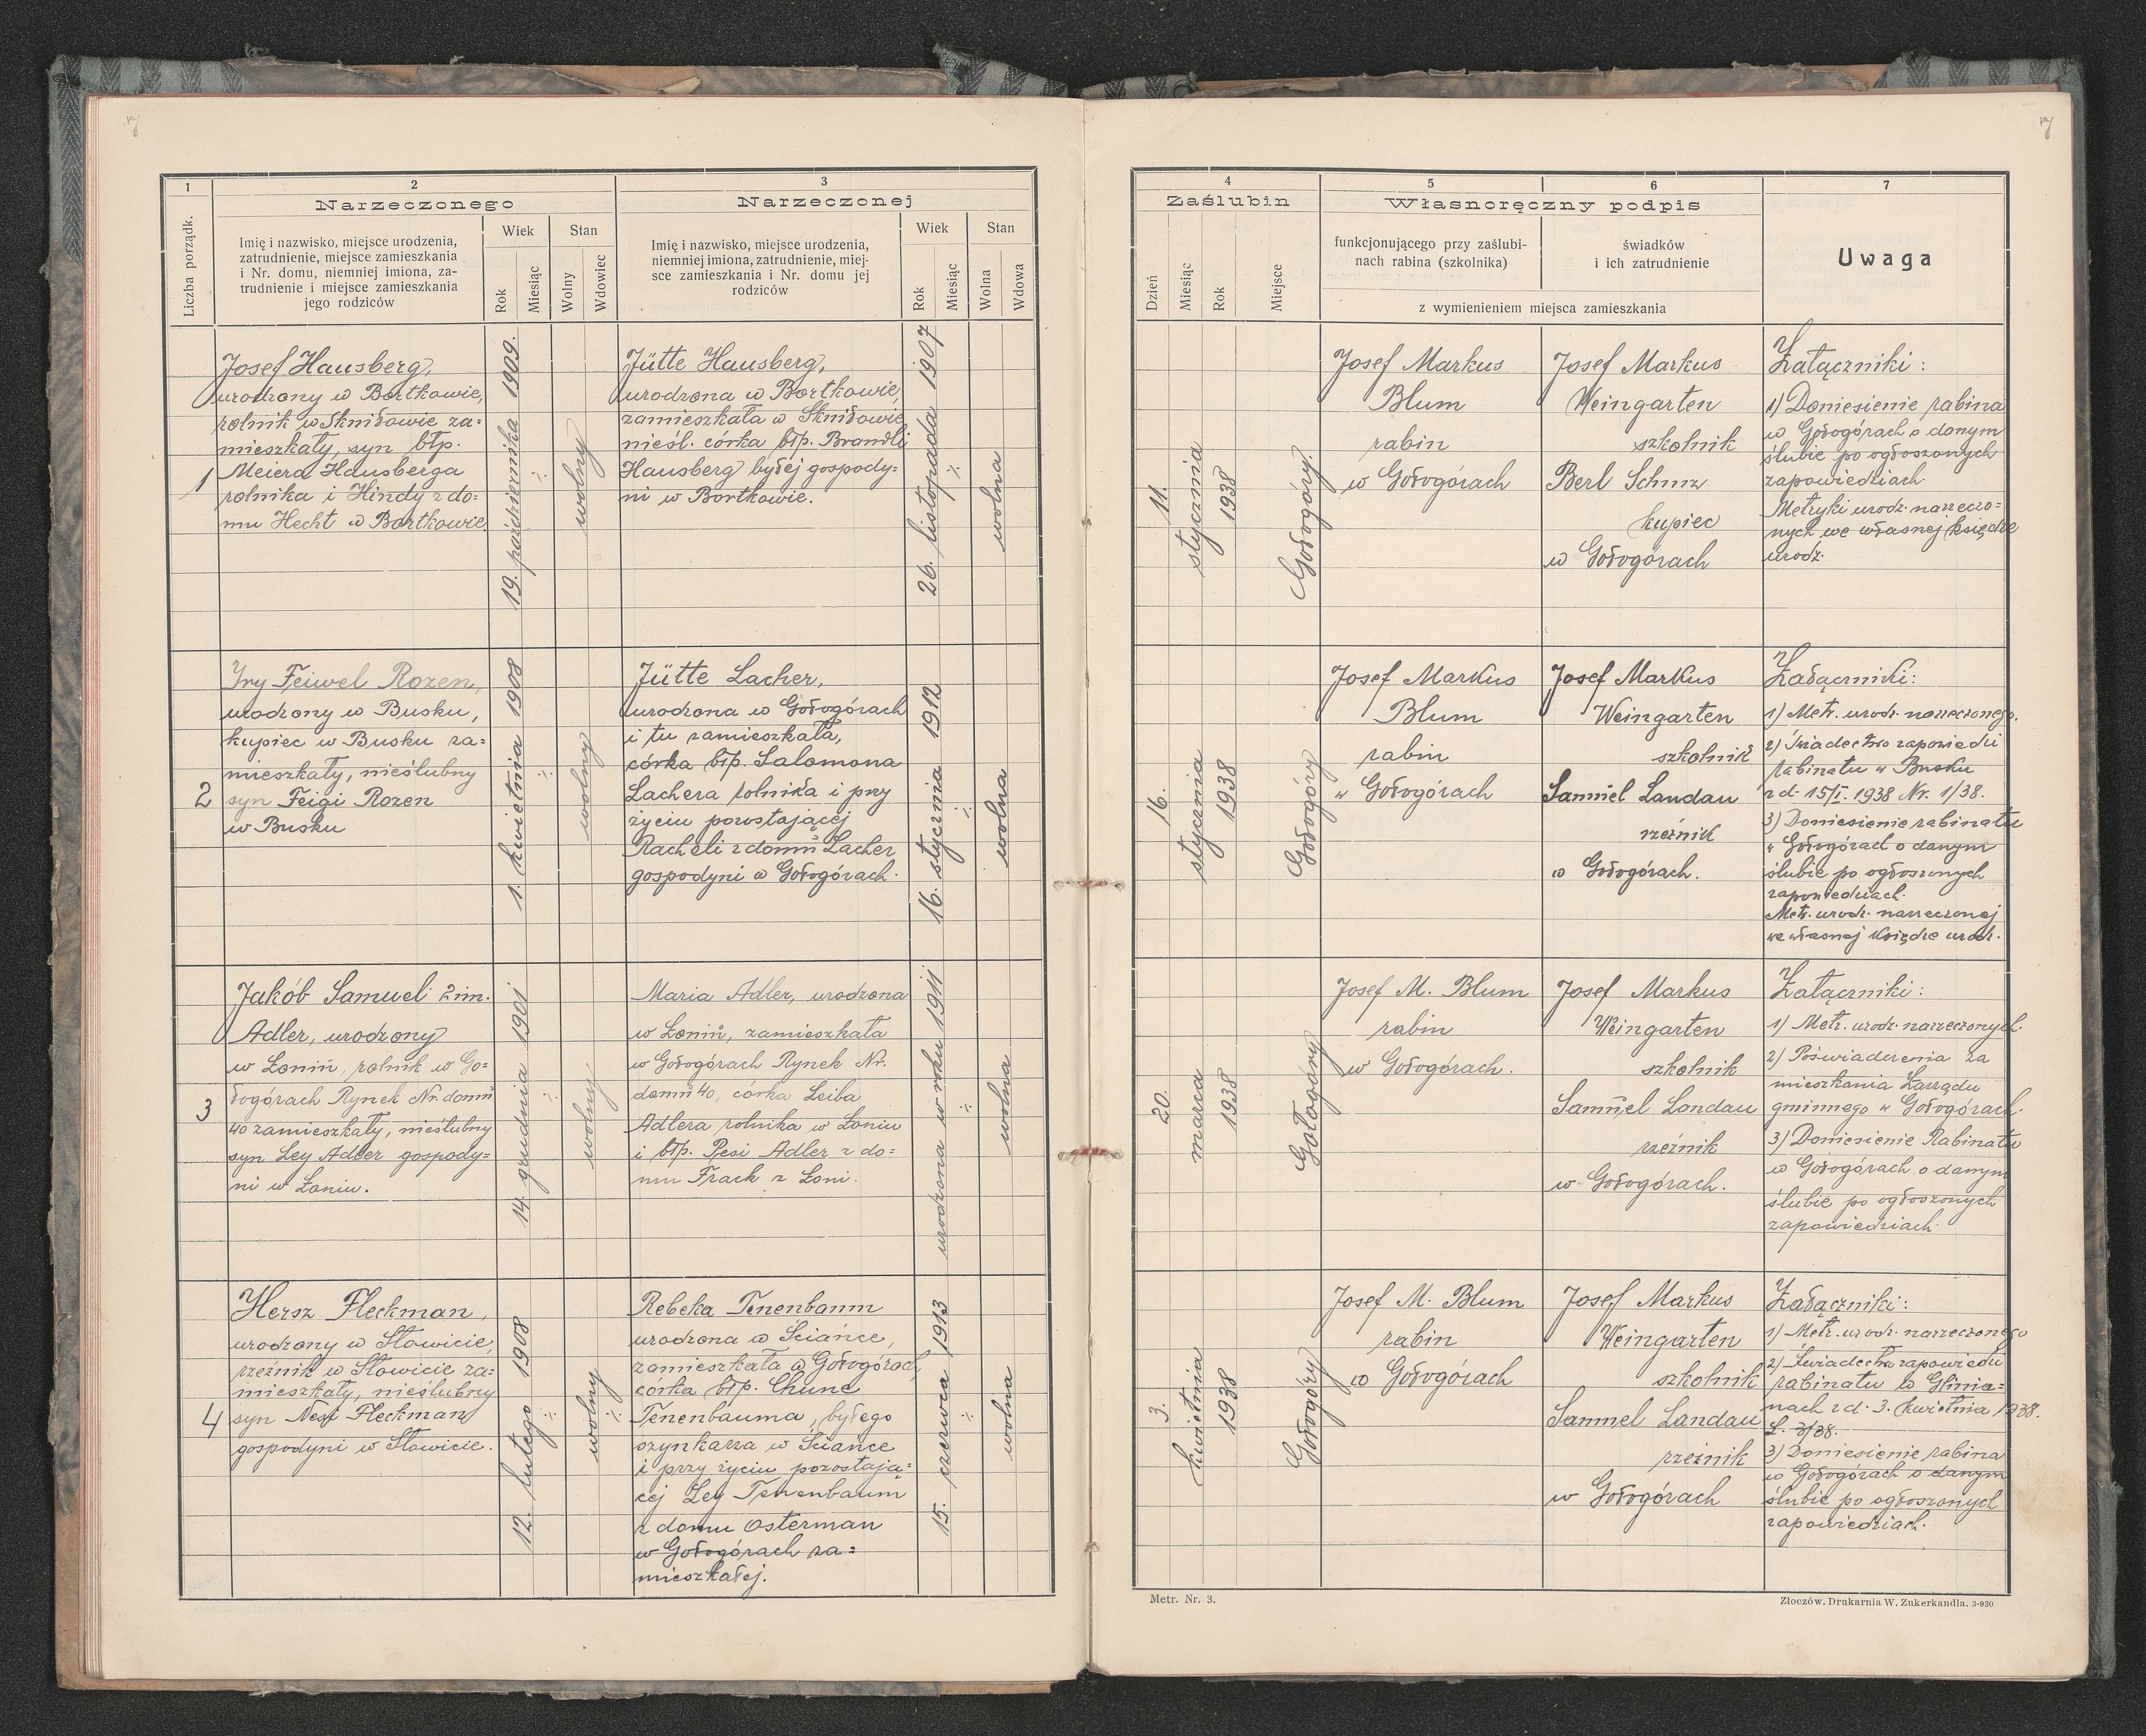 7
7
1
2
3
Narzeczonego
Narzeczonej
Liczba porządk.
Imię i nazwisko, miejsce urodzenia,
zatrudnienie, miejsce zamieszkania
i Nr. domu, niemniej imiona, za-
trudnienie i miejsce zamieszkania
jego rodziców
Wiek
Rok
Miesiąc
Stan
Wolny
Wdowiec
Imię i nazwisko, miejsce urodzenia,
niemniej imiona, zatrudnienie, miej-
sce zamieszkania i Nr. domu jej
rodziców
Wiek
Rok
Miesiąc
Stan
Wolna
Wdowa
4
5
6
7
Zaślubin
Własnoręczny podpis
Dzień
Miesiąc
Rok
Miejsce
funkcjonującego przy zaślubi-
nach rabina (szkolnika)
świadków
i ich zatrudnienie
z wymienieniem miejsca zamieszkania
Uwaga
1
Josef Hausberg,
urodzony w Bortkowie,
rolnik w Skniłowie za=
mieszkały, syn błp.
Meiera Hausberga
rolnika i Hindy z do=
mu Hecht w Bortkowie
19. października 1909.
wolny
Jütte Hausberg,
urodzona w Bortkowie,
zamieszkała w Skniłowie
nieśl. córka błp. Brandli
Hausberg byłej gospody=
ni w Bortkowie.
26. listopada 1907
wolna
11.
stycznia
1938
Gołogóry.
Josef Markus
Blum
rabin
w Gołogórach
Josef Markus
Weingarten
szkolnik
Berl Schmz
kupiec
w Gołogórach
Załączniki:
1) Doniesienie rabina
w Gołogórach o danym
ślubie po ogłoszonych
zapowiedziach
Metryki urodz. narzeczo=
nych we własnej księdze
urodz.
2
Yry Feiwel Rozen,
urodzony w Busku,
kupiec w Busku za=
mieszkały, nieślubny
syn Feigi Rozen
w Busku
1. kwietnia 1908
wolny
Jütte Lacher,
urodzona w Gołogórach
i tu zamieszkała,
córka błp. Salomona
Lachera rolnika i przy
życiu pozostającej
Racheli z domu Lacher
gospodyni w Gołogórach.
16. stycznia 1912
wolna
16.
stycznia
1938
Gołogóry
Josef Markus
Blum
rabin
w Gołogórach
Josef Markus
Weingarten
szkolnik
Samuel Landau
rzeźnik
w Gołogórach.
Załączniki:
1) Metr. urodz. narzeczonego.
2) Świadectwo zapowiedzi
rabinatu w Busku
z d. 15/I. 1938 Nr. 1/38.
3) Doniesienie rabinatu
w Gołogórach o danym
ślubie po ogłoszonych
zapowiedziach.
Metr. urodz. narzeczonej
we własnej księdze urodz.
3
Jakób Samuel 2 im.
Adler, urodzony
w Łoniu, rolnik w Go=
łogórach Rynek Nr. domu
40 zamieszkały, nieślubny
syn Ley Adler gospody=
ni w Łoniu.
14. grudnia 1901
wolny
Maria Adler, urodzona
w Łoniu, zamieszkała
w Gołogórach Rynek Nr.
domu 40, córka Leiba
Adlera rolnika w Łoniu
i błp. Pesi Adler z do=
mu Frack z Łoni.
urodzona w roku 1911
wolna
20.
marca
1938
Gołogóry
Josef M. Blum
rabin
w Gołogórach.
Josef Markus
Weingarten
szkolnik
Samuel Landau
rzeźnik
w Gołogórach.
Załączniki:
1) Metr. urodz. narzeczonych.
2) Poświadczenia za
mieszkania Zarządu
gminnego w Gołogórach.
3) Doniesienie Rabinatu
w Gołogórach o danym
ślubie po ogłoszonych
zapowiedziach.
4
Hersz Fleckman,
urodzony w Słowicie,
rzeźnik w Słowicie za=
mieszkały, nieślubny
syn Nesi Fleckman
gospodyni w Słowicie.
12. lutego 1908
wolny
Rebeka Tenenbaum
urodzona w Ściańce,
zamieszkała w Gołogórach,
córka błp. Chune
Tenenbauma, byłego
szynkarza w Ściańce
i przy życiu pozostają=
cej Ley Tenenbaum
z domu Osterman
w Gołogórach za=
mieszkałej.
15. czerwca 1913
wolna
3.
kwietnia
1938
Gołogóry
Josef M. Blum
rabin
w Gołogórach
Josef Markus
Weingarten
szkolnik
Samuel Landau
rzeźnik
w Gołogórach
Załączniki:
1) Metr. urodz. narzeczonego
2) Świadectw. zapowiedzi
rabinatu w Glinia=
nach z d. 3. kwietnia 1938.
L. 3/38.
3) Doniesienie rabina
w Gołogórach o danym
ślubie po ogłoszonych
zapowiedziach.
Metr. Nr. 3.
Złoczów, Drukarnia W. Zukerkandla. 3-930